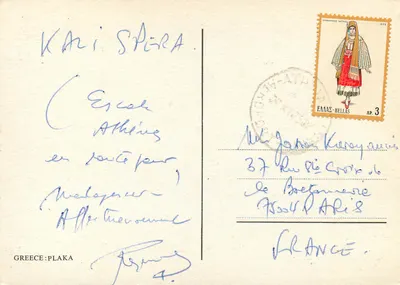 KALI SPERA.
(Escale
Athènes
en route pour
Madagascar
Affectueusement
GREECE: PLAKA
ΕΛΛΑΣ-HELLAS
ΔΡ 3
37 Rue Ste Croix de
la Bretonnerie
75004 PARIS
FRANCE.